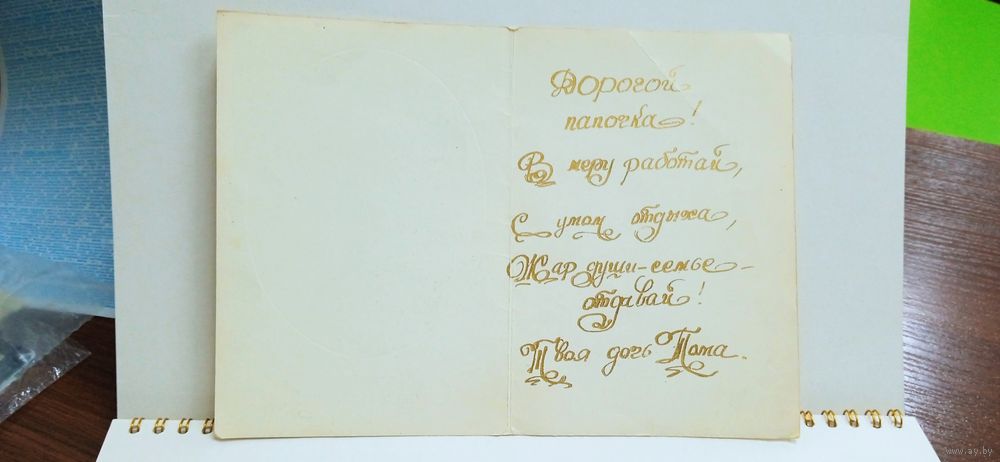 Дорогой
папочка!
В меру работай,
С умом отдыха,
Жар души-семье-
отдавай!
Твоя дочь Тома.
www.ay.by